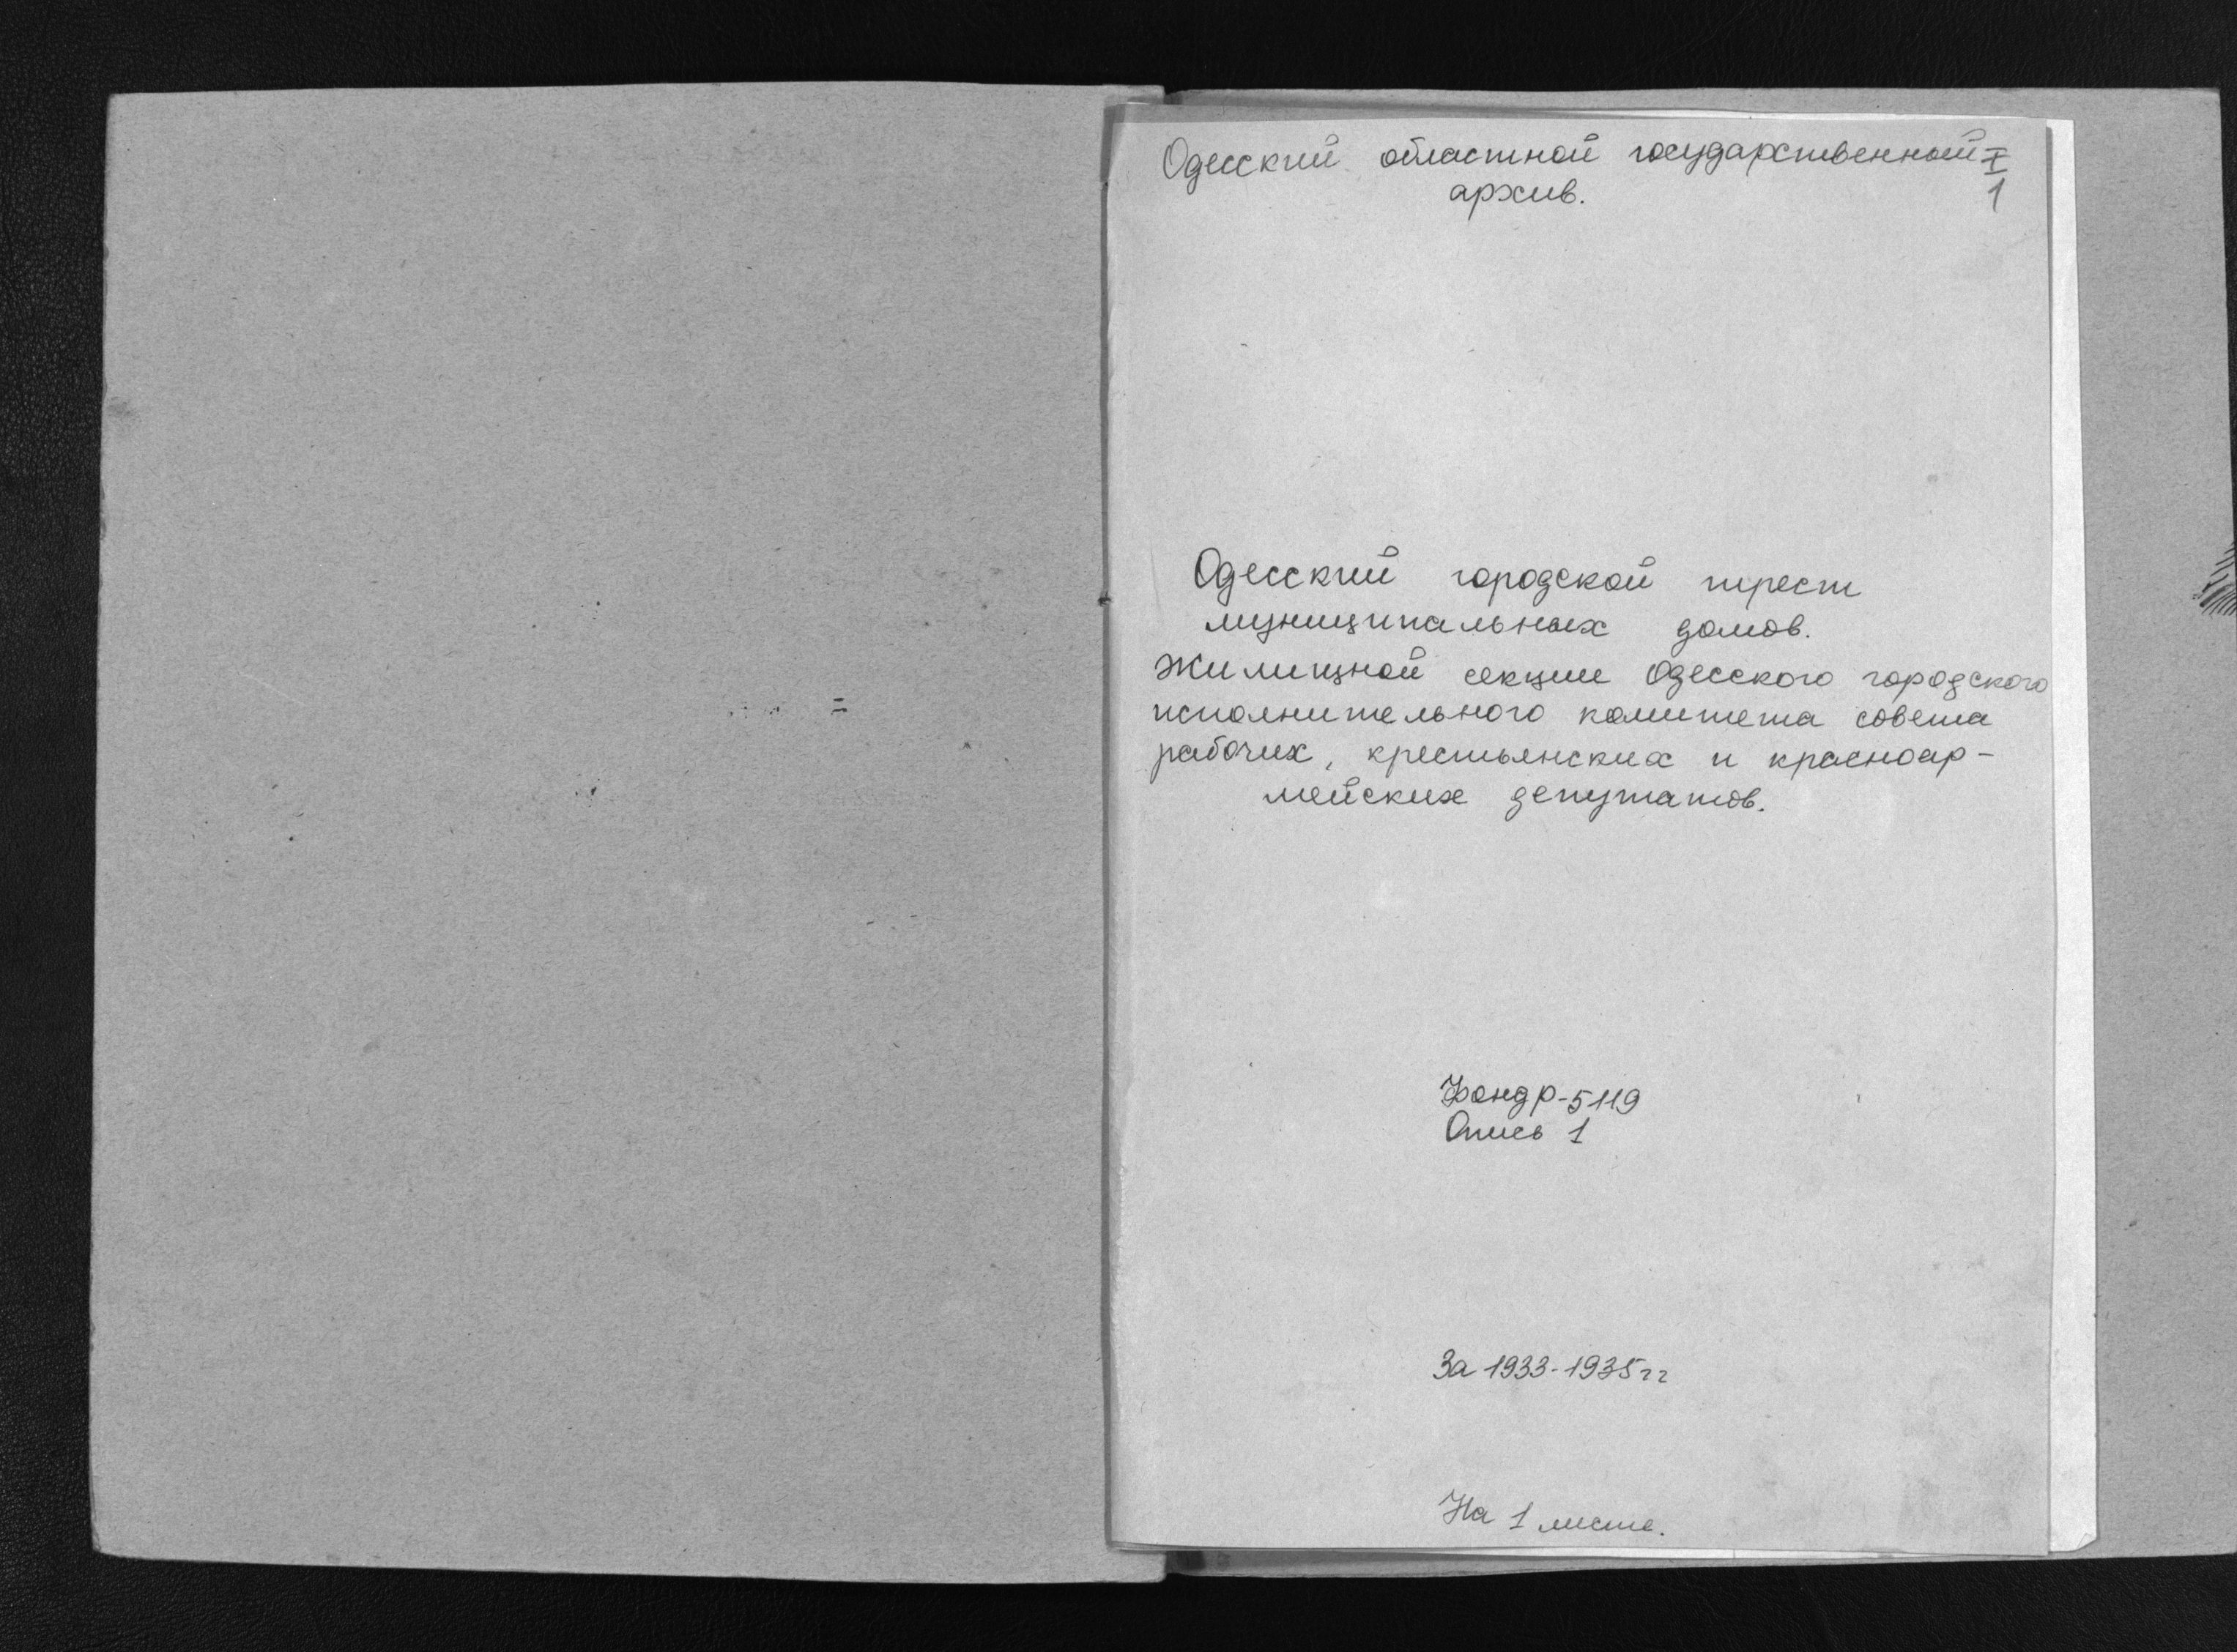 Одесский областной государственный I
архив. 1
Одесский городской трест
муниципальных домов.
Жилищной секции Одесского городского
исполнительного комитета совета
рабочих, крестьянских и красноар-
мейских депутатов.
Фонд р-5119
Опись 1
За 1933-1935 гг
На 1 листе.